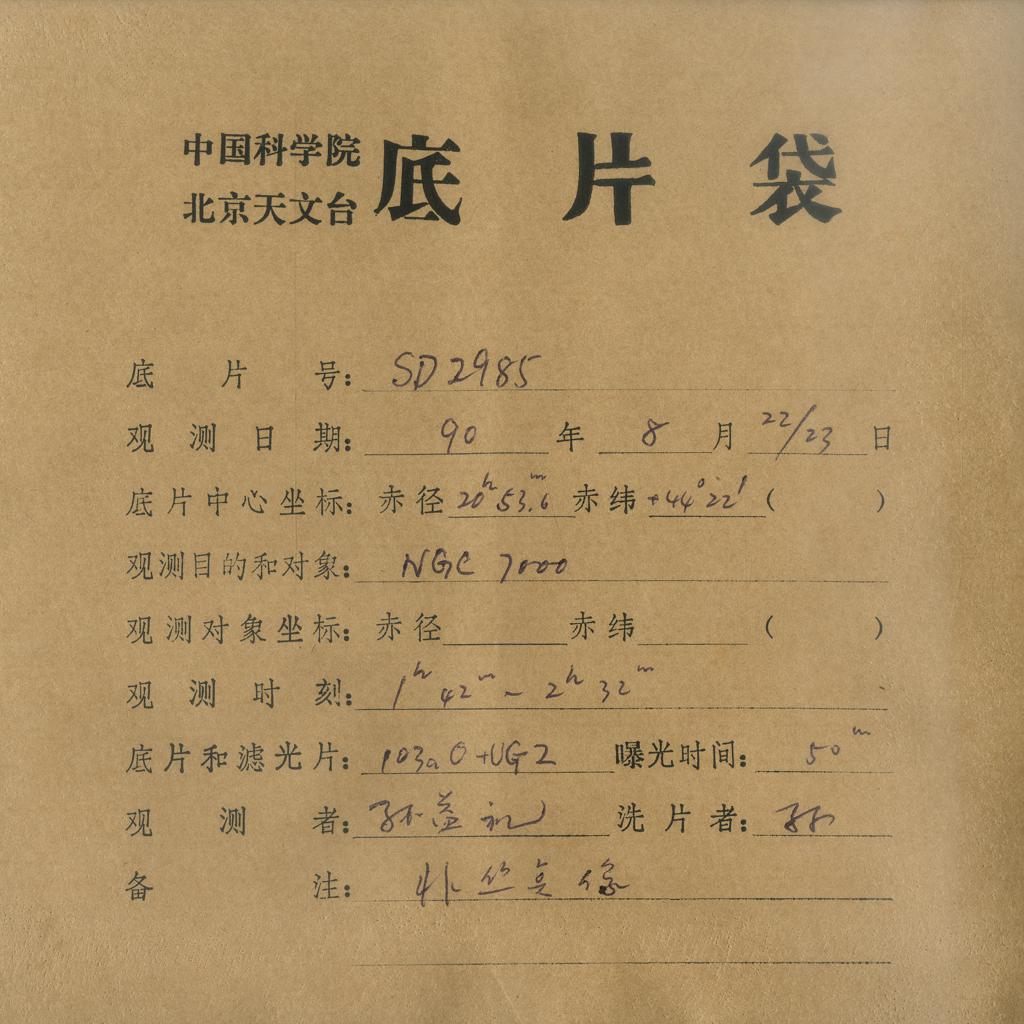 中国科学院
北京天文台
底片袋
底片号： SD2985
观测日期： 90 年 8 月 22/23 日
底片中心坐标： 赤径 20h53.m6 赤纬 +44°22′ ( )
观测目的和对象： NGC 7000
观测对象坐标： 赤径 赤纬 ( )
观测时刻： 1h 42m ~ 2h 32m
底片和滤光片： 103aO+UG2 曝光时间： 50m
观测者： 孙益礼 洗片者： 孙
备注：